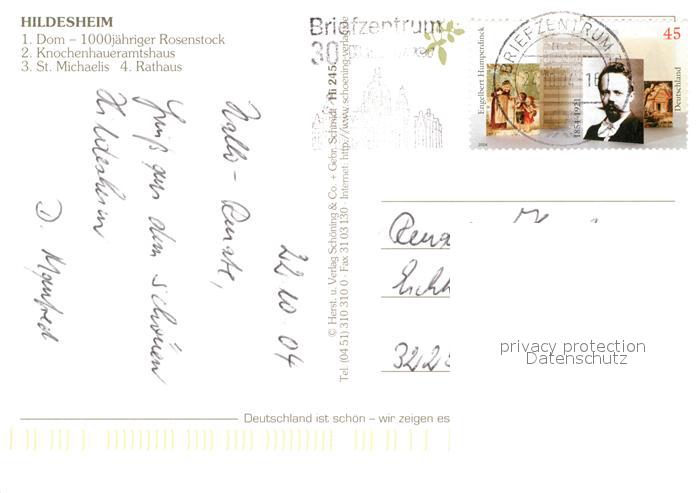 HILDESHEIM
1. Dom – 1000jähriger Rosenstock
2. Knochenhaueramtshaus
3. St. Michaelis 4. Rathaus
Briefzentrum
30
BRIEFZENTRUM
45
Engelbert Humperdinck
1854-1921
Deutschland
2004
22.10.04
Hallo - Renate,
Gruß aus dem schönen
Hildesheim
D. Manfred
© Herst. u. Verlag Schöning & Co. + Gebr. Schmidt
Hi 245
Tel. (04 51) 310 310 0 · Fax 31 03 130 · Internet: http://www.schoening-verlag.de
Rena
Eich
322
privacy protection
Datenschutz
Deutschland ist schön – wir zeigen es